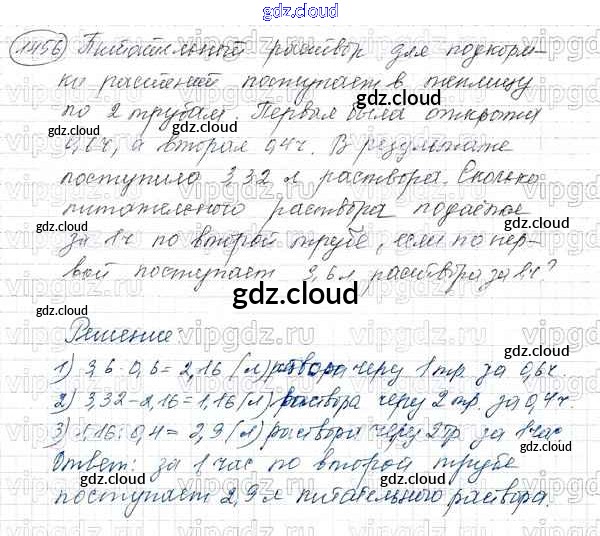 gdz.cloud
1456 Питательный раствор для подкорм-
ки растений поступает в теплицу
по 2 трубам. Первая была открыта
0,6 ч, а вторая 0,4 ч. В результате
поступило 3,32 л раствора. Сколько
питательного раствора подается
за 1 ч по второй трубе, если по пер-
вой поступает 3,6 л раствора за 1 ч?
gdz.cloud
Решение:
1) 3,6 · 0,6 = 2,16 (л) раствора через 1 тр. за 0,6 ч.
2) 3,32 - 2,16 = 1,16 (л) раствора через 2 тр. за 0,4 ч.
3) 1,16 : 0,4 = 2,9 (л) раствора через 2 тр. за 1 час
Ответ: за 1 час по второй трубе
поступает 2,9 л питательного раствора.